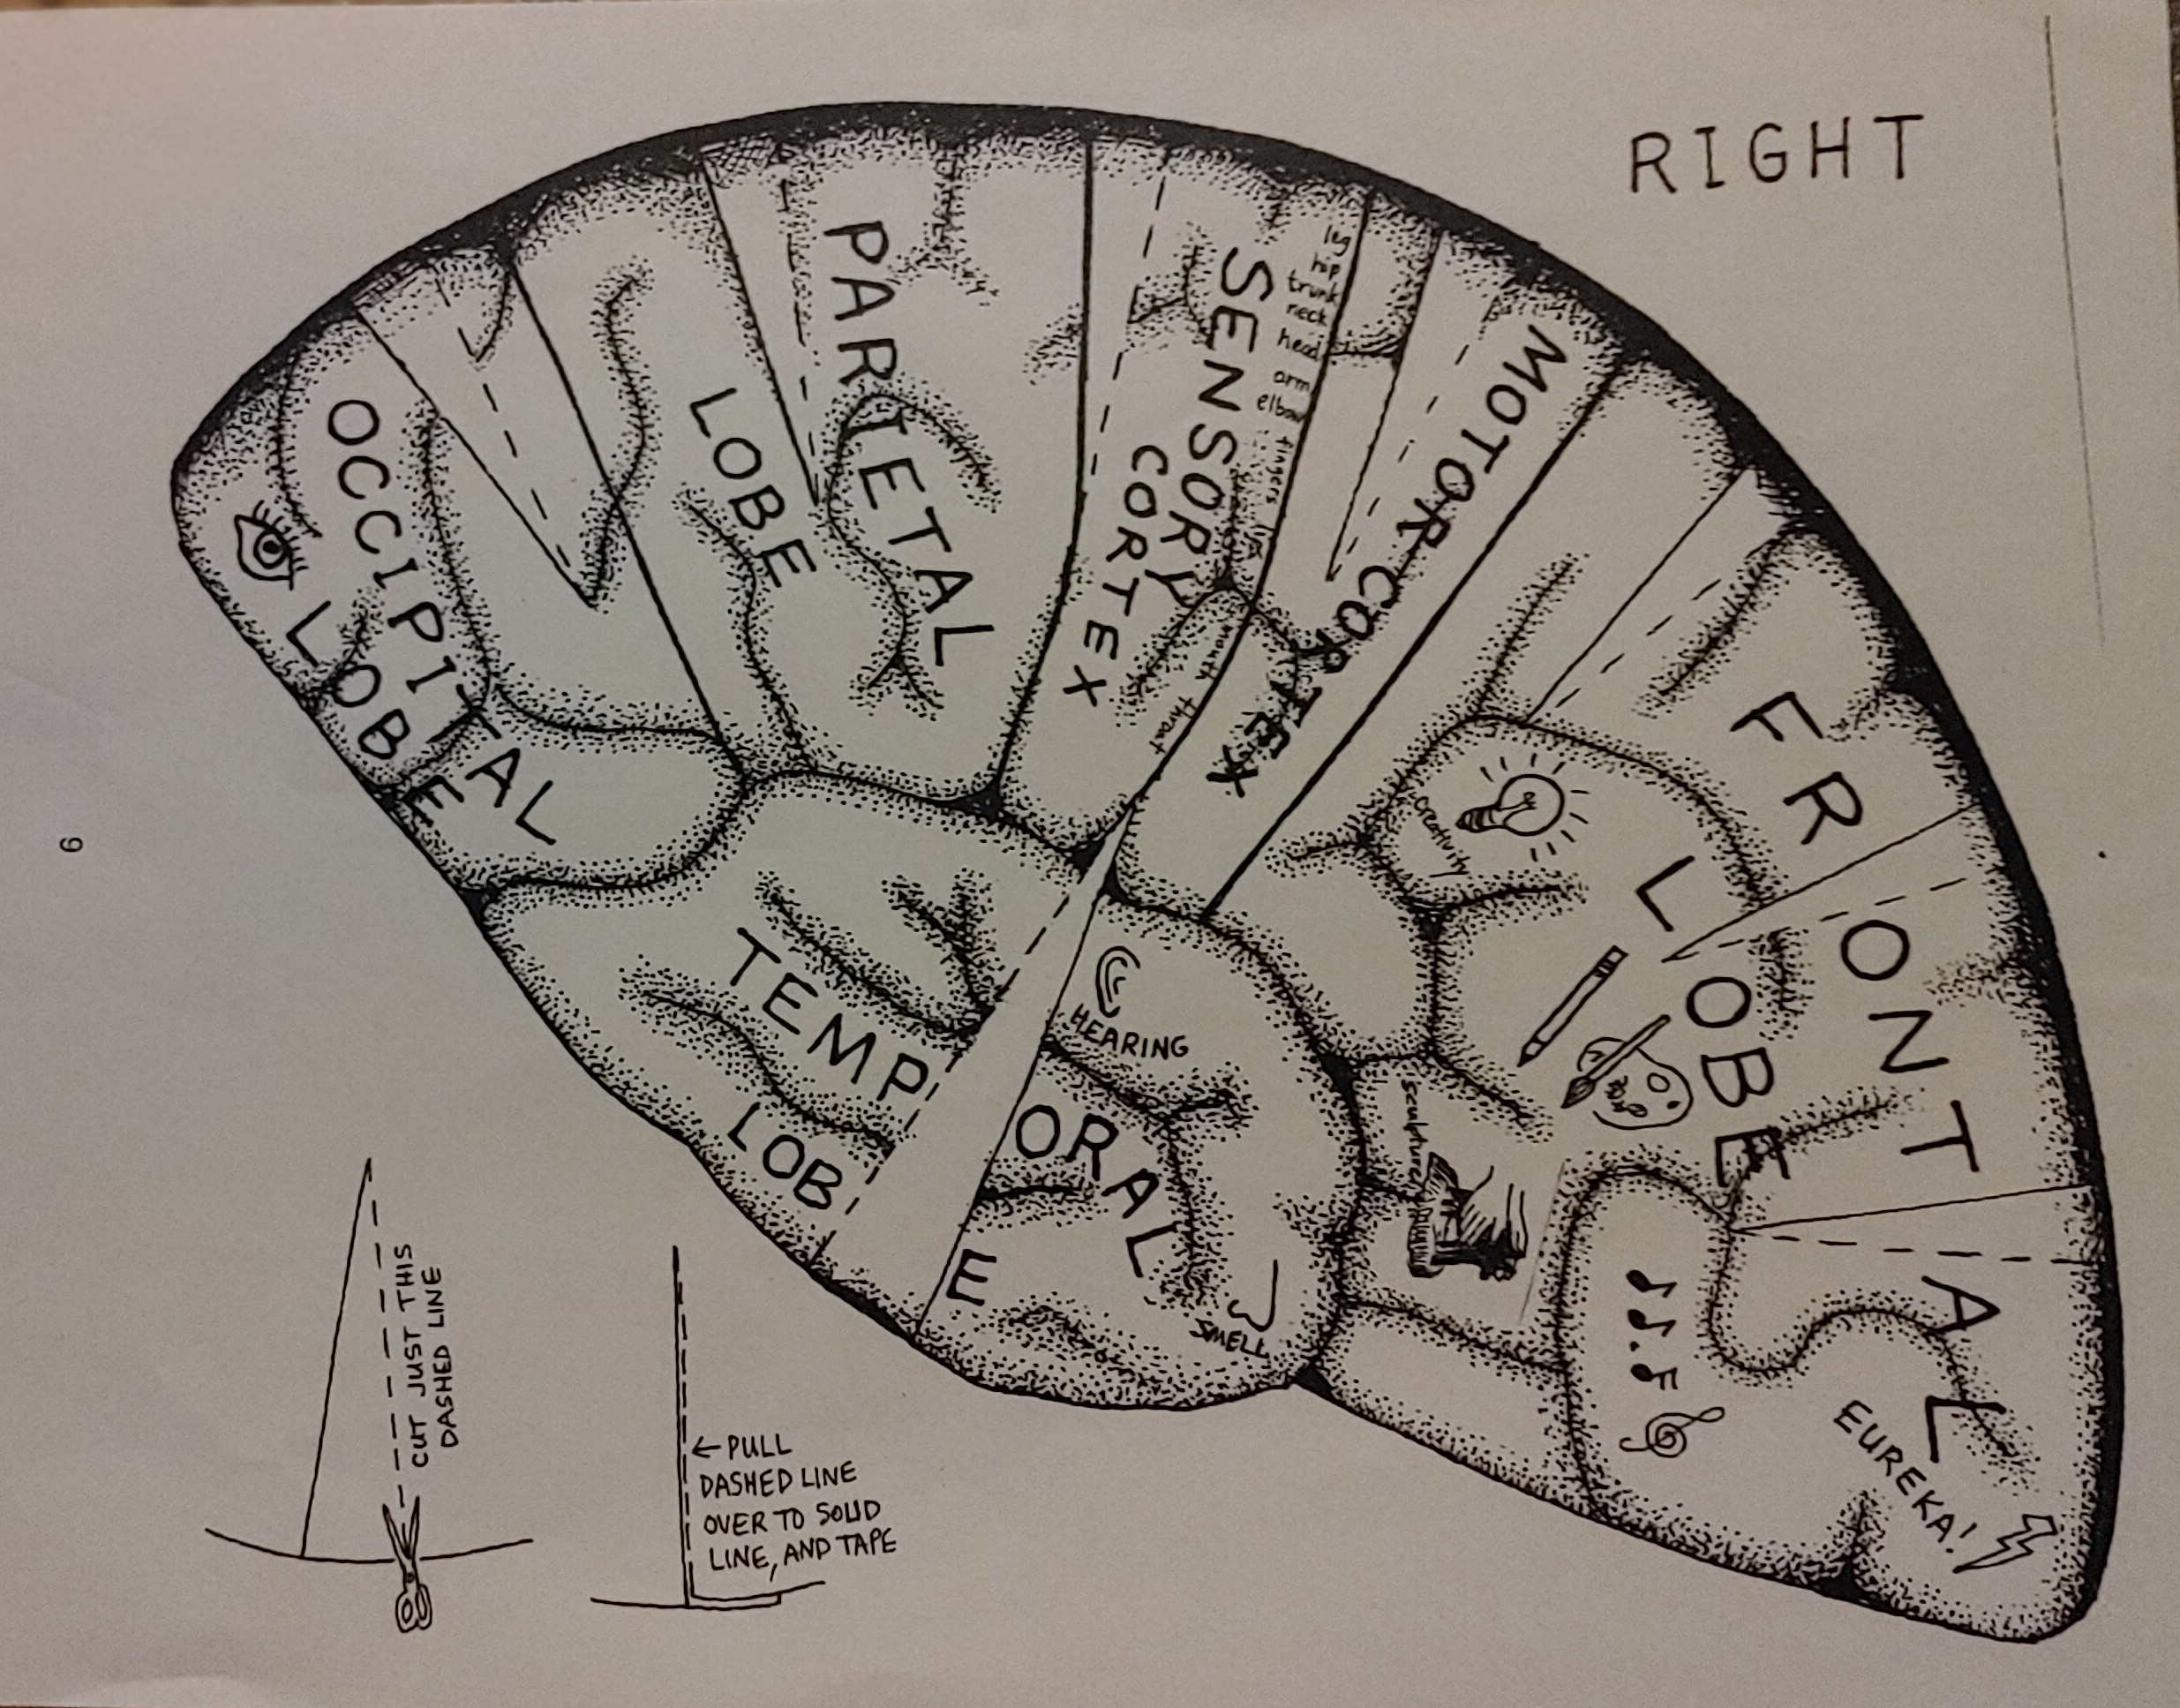 RIGHT
PARIETAL
LOBE
SENSORY
CORTEX
leg
hip
trunk
neck
head
arm
elbow
fingers
mouth
throat
MOTOR CORTEX
OCCIPITAL
LOBE
FRONTAL
LOBE
creativity
sculpture
EUREKA!
TEMPORAL
LOBE
HEARING
SMELL
CUT JUST THIS
DASHED LINE
← PULL
DASHED LINE
OVER TO SOLID
LINE, AND TAPE
6